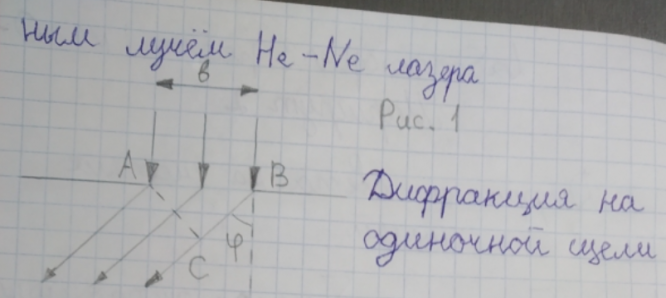 ным лучём He-Ne лазера
в
Рис. 1
A
B
Дифракция на
одиночной щели
C
φ